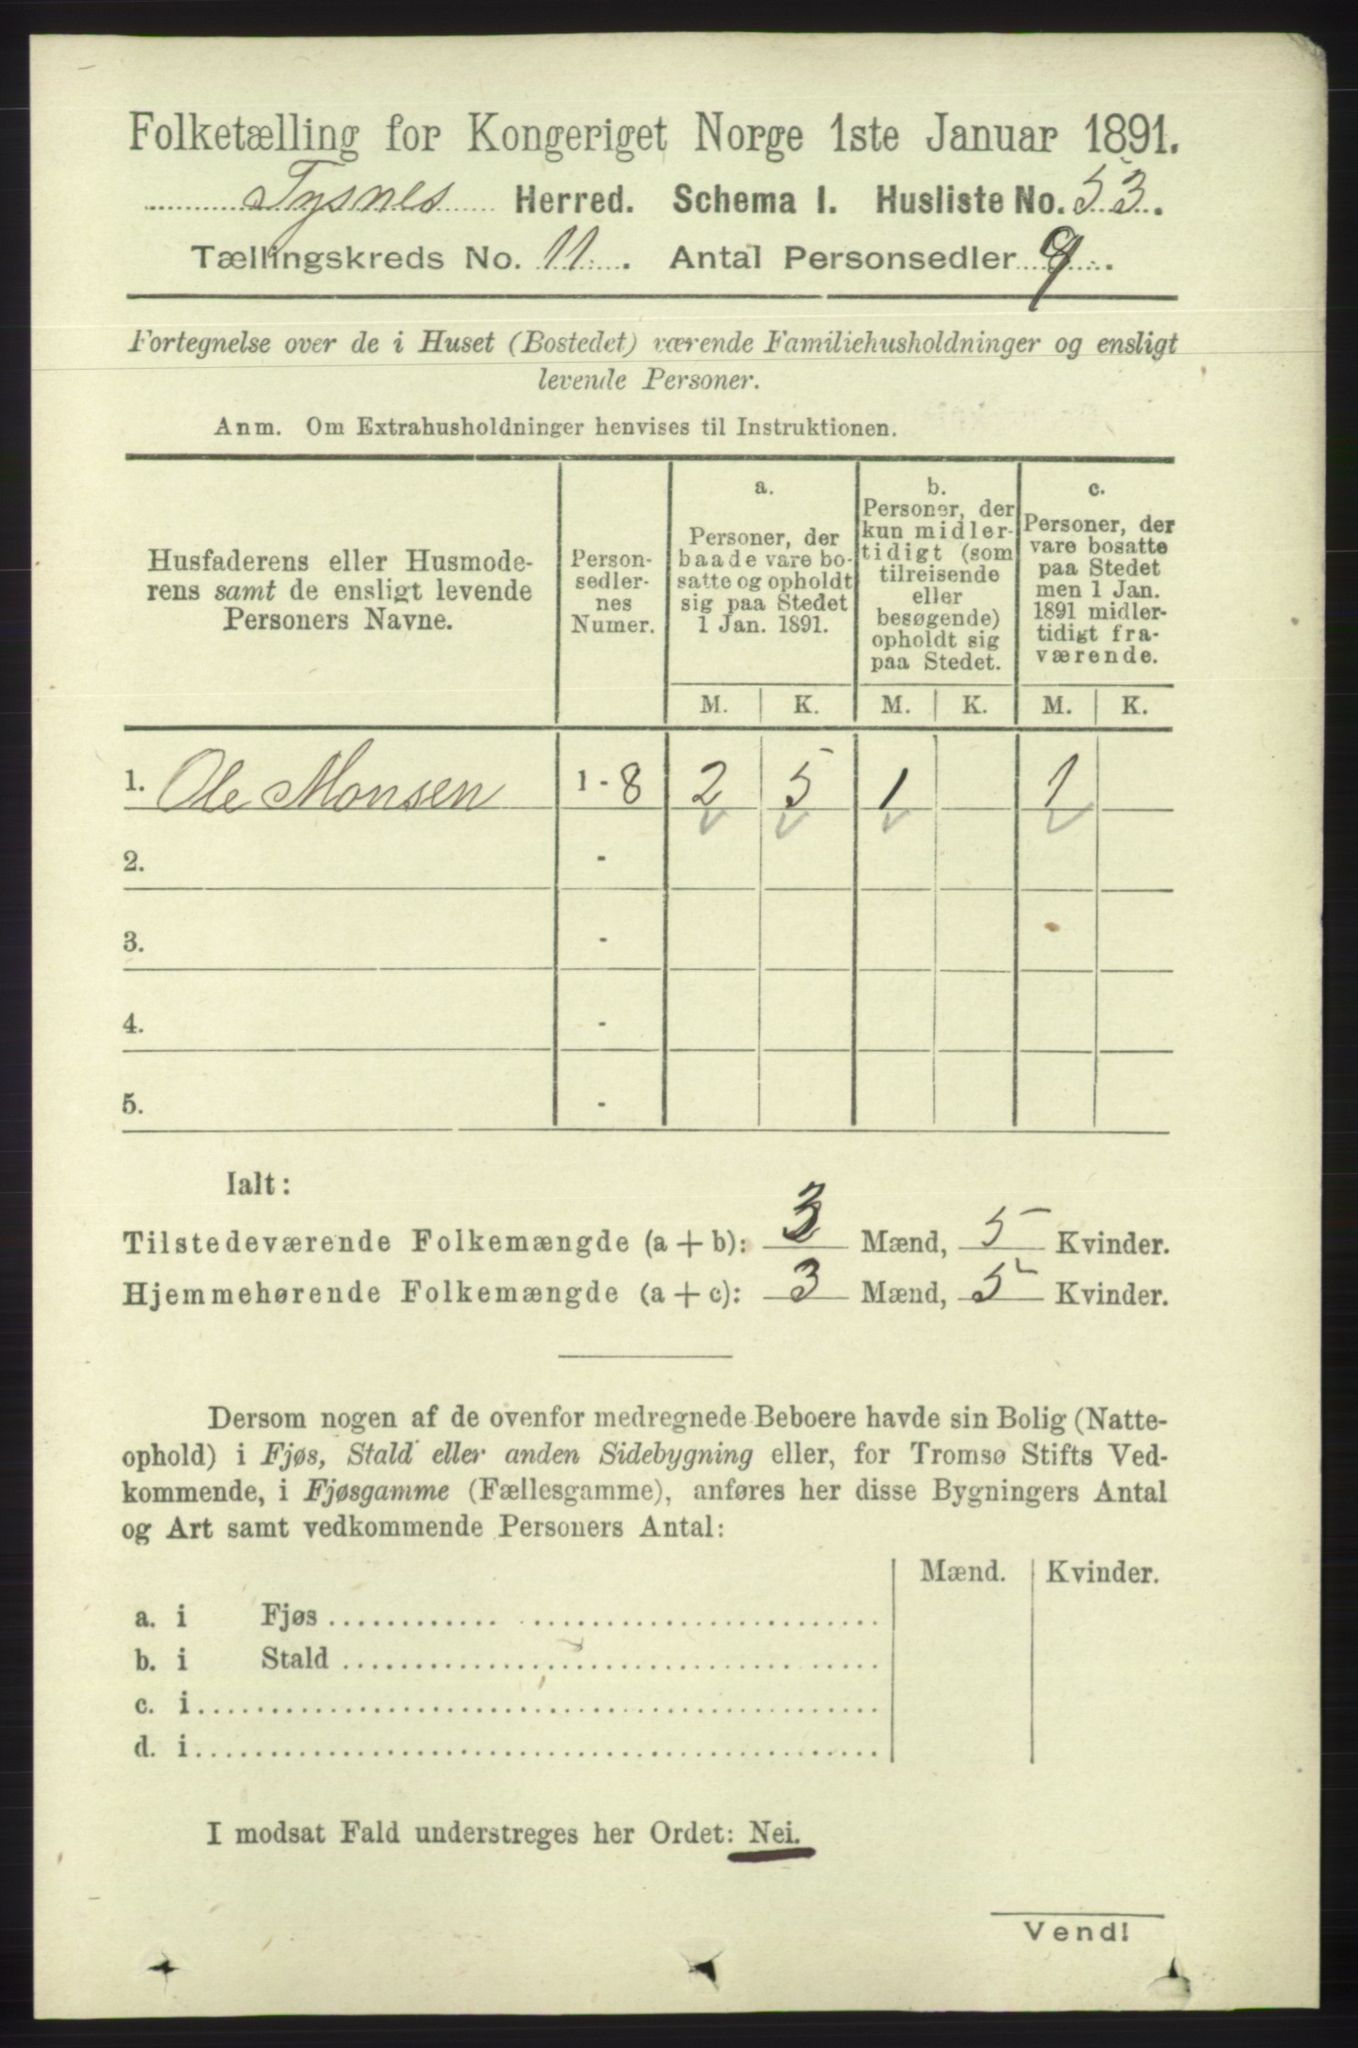 Folketælling for Kongeriget Norge 1ste Januar 1891.
Tysnes Herred. Schema I. Husliste No. 53.
Tællingskreds No. 11. Antal Personsedler 9.
Fortegnelse over de i Huset (Bostedet) værende Familiehusholdninger og ensligt
levende Personer.
Anm. Om Extrahusholdninger henvises til Instruktionen.
Husfaderens eller Husmode-
rens samt de ensligt levende
Personers Navne.
Person-
sedler-
nes
Numer.
a.
Personer, der
baade vare bo-
satte og opholdt
sig paa Stedet
1 Jan. 1891.
b.
Personer, der
kun midler-
tidigt (som
tilreisende
eller
besøgende)
opholdt sig
paa Stedet.
c.
Personer, der
vare bosatte
paa Stedet
men 1 Jan.
1891 midler-
tidigt fra-
værende.
M. K. M. K. M. K.
1. Ole Monsen 1 - 8 2 5 1 1
2. -
3. -
4. -
5. -
Ialt:
Tilstedeværende Folkemængde (a + b): 3 Mænd, 5 Kvinder.
Hjemmehørende Folkemængde (a + c): 3 Mænd, 5 Kvinder.
Dersom nogen af de ovenfor medregnede Beboere havde sin Bolig (Natte-
ophold) i Fjøs, Stald eller anden Sidebygning eller, for Tromsø Stifts Ved-
kommende, i Fjøsgamme (Fællesgamme), anføres her disse Bygningers Antal
og Art samt vedkommende Personers Antal:
Mænd. Kvinder.
a. i Fjøs
b. i Stald
c. i
d. i
I modsat Fald understreges her Ordet: Nei.
Vend!